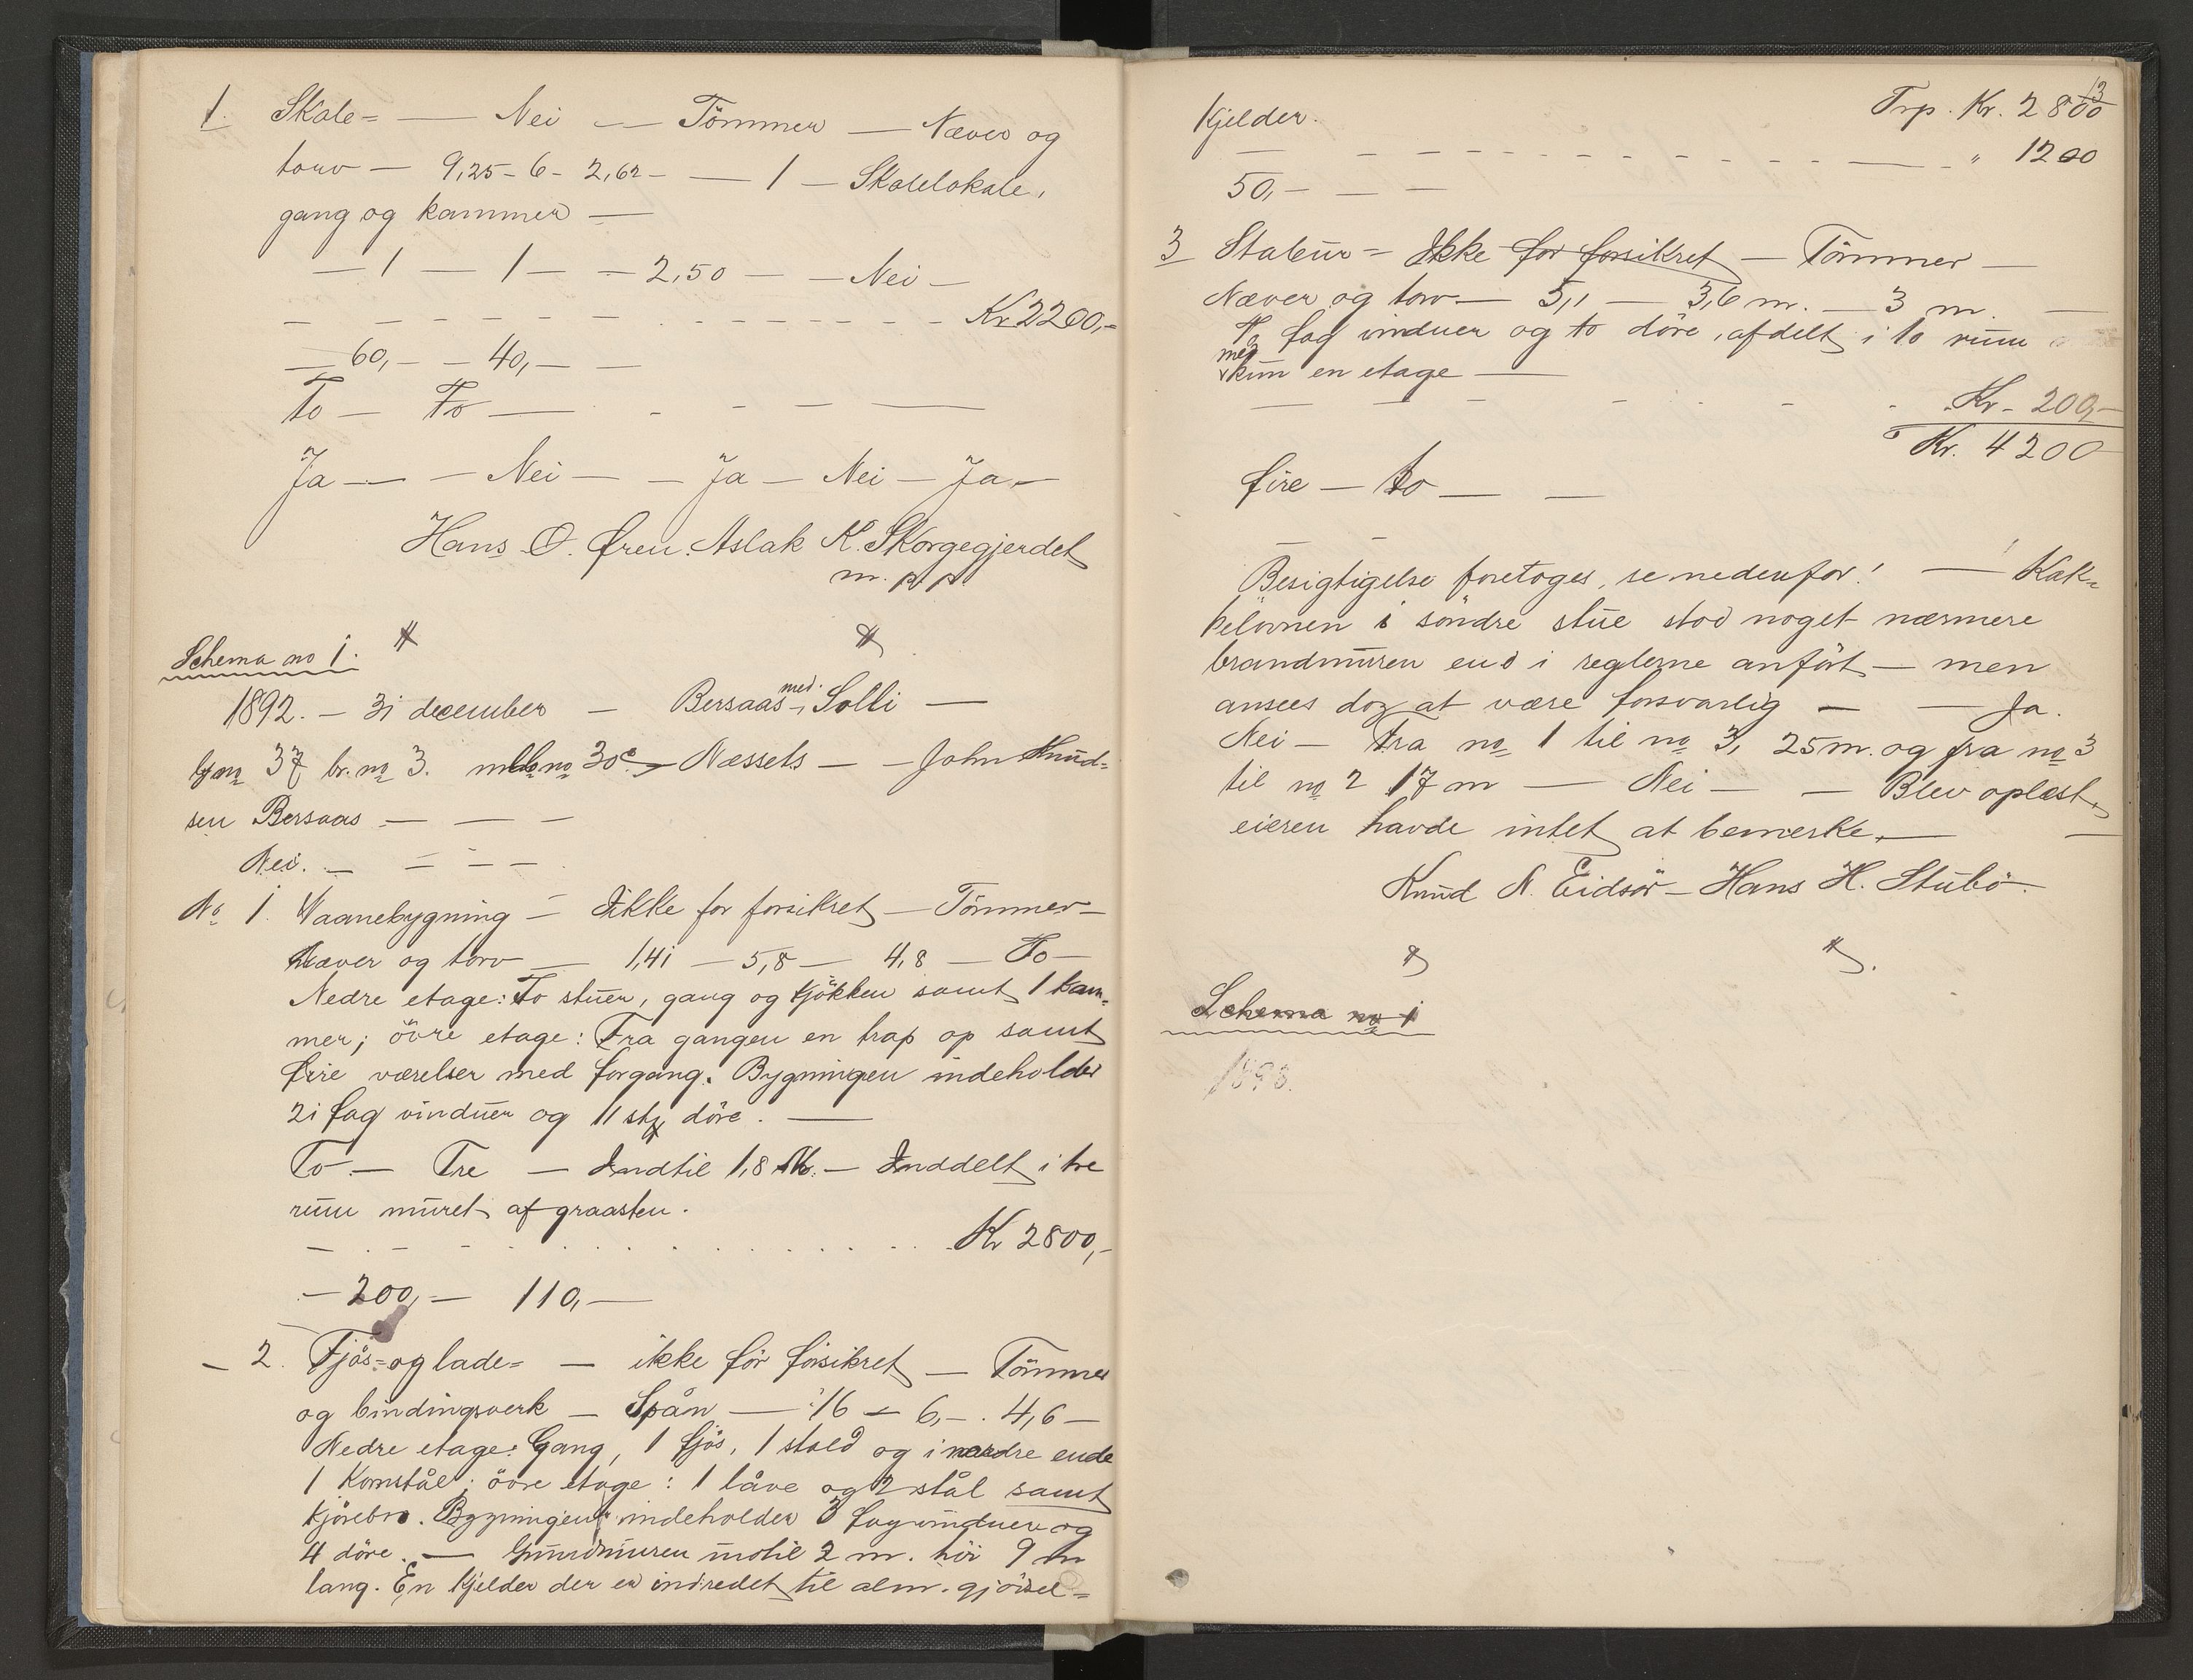 1. Skole= — Nei — Tömmer — Næver og
torv — 9,25 - 6 - 2,62 - — 1 — Skolelokale,
gang og kammer —
— 1 — 1 — — 2,50 — — Nei —
— — — — — — — — — — Kr 2200,-
— 60,- — 40,- — —
To — To — — — —
Ja — — Nei — — Ja — Nei — Ja —
Hans O. Øren. Aslak K. Skorgegjerdet
m. p. p.
Schema no 1.
1892. — 31 december — Bersaas med Solli —
Gno 37 br. no 3. no 30c — Næssets — — John Knud=
sen Bersaas — — —
Nei. — — — —
No 1. Vaanebygning — Ikke før forsikret — Tömmer —
Næver og torv — 1,41 — 5,8 — 4,8 — To —
Nedre etage: To stuer, gang og kjökken samt 1 kam=
mer; övre etage: Fra gangen en trap op samt
fire værelser med forgang. Bygningen indeholder
21 fag vinduer og 11 stk döre. —
To — Tre — Indtil 1,8 M. — Inddelt i tre
rum muret af graasten.
— — — Kr 2800,-
— 200,- — 110,-
— 2. Fjös= og lade= — ikke för forsikret — Tömmer
og bindingsverk — Spån — 16 — 6,- . 4,6 —
Nedre etage: Gang, 1 fjös, 1 stald og i nordre ende
1 Kornstål; övre etage: 1 låve og 2 stål samt
kjörebro. Bygningen indeholder 3 fag vinduer og
4 döre. — Grundmuren indtil 2 m. höi 9 m
lang. En kjelder der er indredet til alm. gjödsel=
13
kjelder. Trp. Kr. 2800
— — — — — — — — — " 1200
50,- — —
3 Stabur = Ikke för forsikret — Tömmer —
Næver og torv — 5,1 — 3,6 m. — 3 m. —
To fag vinduer og to döre, afdelt i to rum
med
kun en etage —
— — — — Kr. 200,-
Kr. 4200
fire — to — —
Besigtigelse foretoges, se nedenfor! — Kak=
kelovnen i söndre stue stod noget nærmere
brandmuren end i reglerne anfört — men
ansees dog at være forsvarlig — — Ja.
Nei — Fra no 1 til no 3, 25 m. og fra no 3
til no 2 17 m — Nei — — Blev oplæst,
eieren havde intet at bemerke. — —
Knud N. Eidsör — Hans H. Stubö.
Schema no 1
1898.